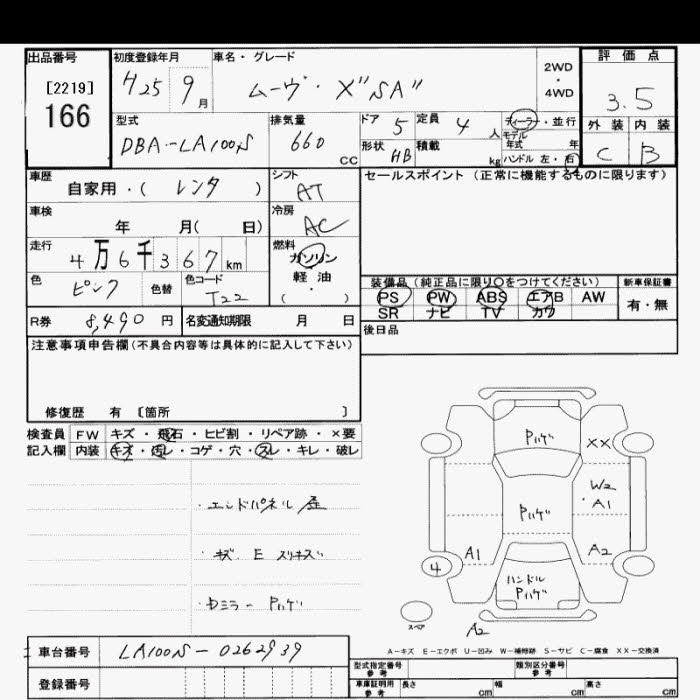 出品番号
[2219]
166
初度登録年月
H25 9月
車名・グレード
ムーヴ・X"SA"
2WD
・
4WD
評価点
3.5
外装 内装
C B
型式
DBA-LA100S
排気量
660 CC
ドア 5
定員 4 人
形状 HB
積載 kg
ディーラー・並行
モデル
年式 年
ハンドル 左・右
車歴
自家用・( レンタ )
シフト
AT
セールスポイント (正常に機能するものに限ります)
車検
年 月( 日)
冷房
AC
走行
4万6千367km
燃料
ガソリン
軽油
・
( )
色
ピンク
色替
色コード
T22
装備品 (純正品に限り〇をつけてください)
PS PW ABS エアB AW
SR ナビ TV カワ
新車保証書
有・無
R券 8,490 円
名変通知期限 月 日
後日品
注意事項申告欄(不具合内容等は具体的に記入して下さい)
修復歴 有 〔箇所 〕
検査員 FW キズ・飛石・ヒビ割・リペア跡・×要
記入欄 内装 キズ・汚レ・コゲ・穴・スレ・キレ・破レ
・エンドパネル
・キズ、E スリキズ
・Dミラー Pハゲ
Pハゲ
XX
W2
A1
Pハゲ
A1
A2
4
ハンドル
Pハゲ
スペア
A2
A-キズ E-エクボ U-凹み W-補修跡 S-サビ C-腐食 XX-交換済
車台番号 LA100S-0262939
登録番号
型式指定番号
参考
類別区分番号
参考
車庫証明用
参考
長さ cm
幅 cm
高さ cm